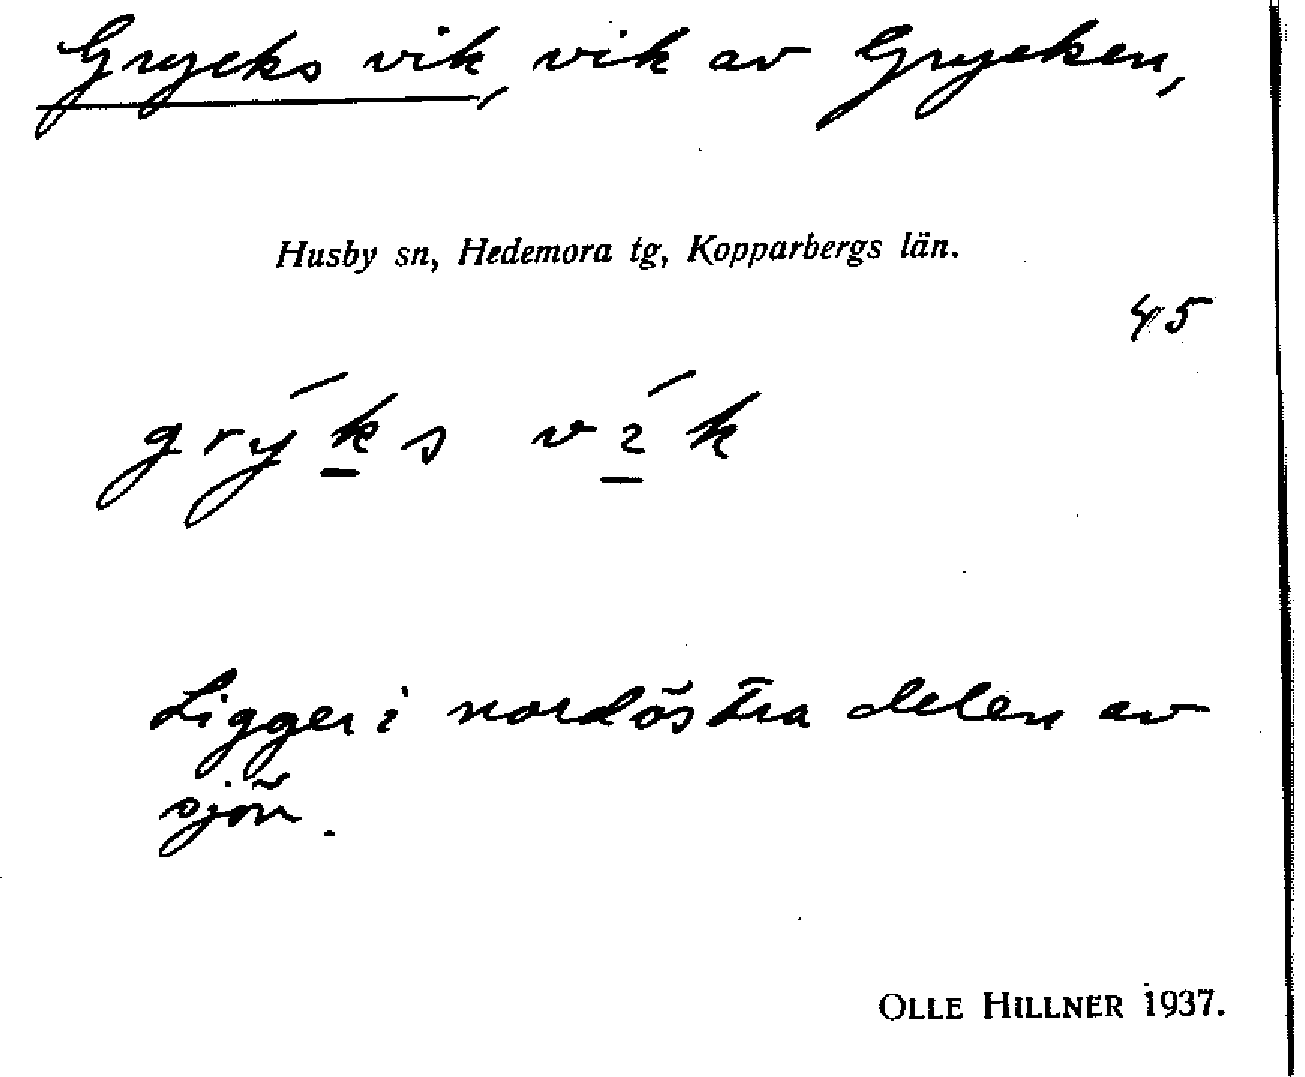 Grycks vik, vik av Grycken,
Husby sn, Hedemora tg, Kopparbergs län.
45
grý̀ks vík
Ligger i nordöstra delen av
sjön.
OLLE HILLNER 1937.